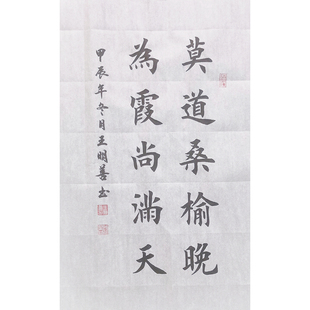 莫道桑榆晚
為霞尚滿天
甲辰年冬月王明善书